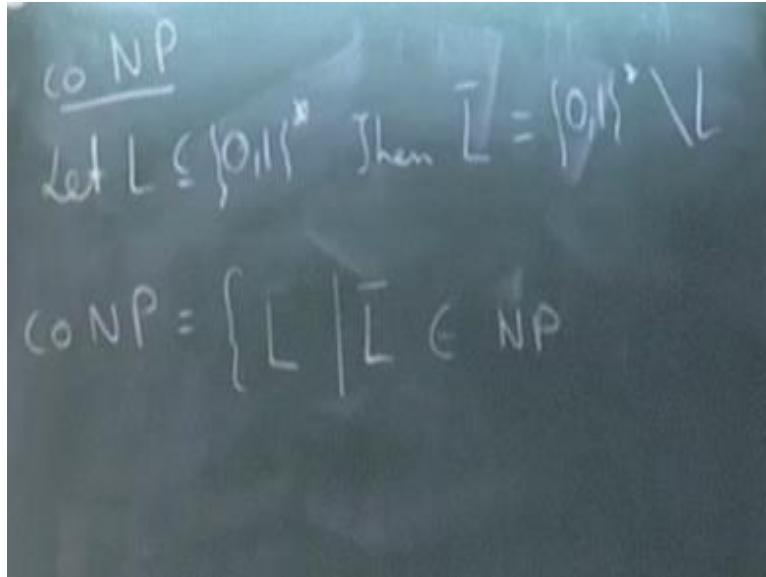 co NP
Let L ⊆ {0,1}* Then L̅ = {0,1}* \ L
coNP = { L | L̅ ∈ NP